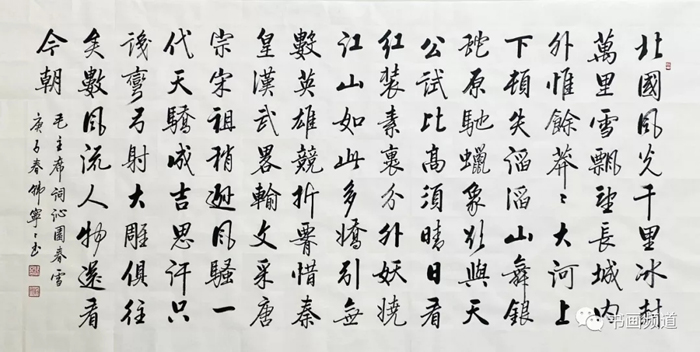 北國風光千里冰封
萬里雪飄望長城内
外惟餘莽〻大河上
下頓失滔滔山舞銀
蛇原馳蠟象欲與天
公試比高須晴日看
红装素裹分外妖嬈
江山如此多嬌引無
數英雄競折腰惜秦
皇漢武畧輸文采唐
宗宋祖稍遜風騷一
代天驕成吉思汗只
識彎弓射大雕俱往
矣數風流人物還看
今朝
毛主席詞沁園春雪
庚子春佛寧
书画频道